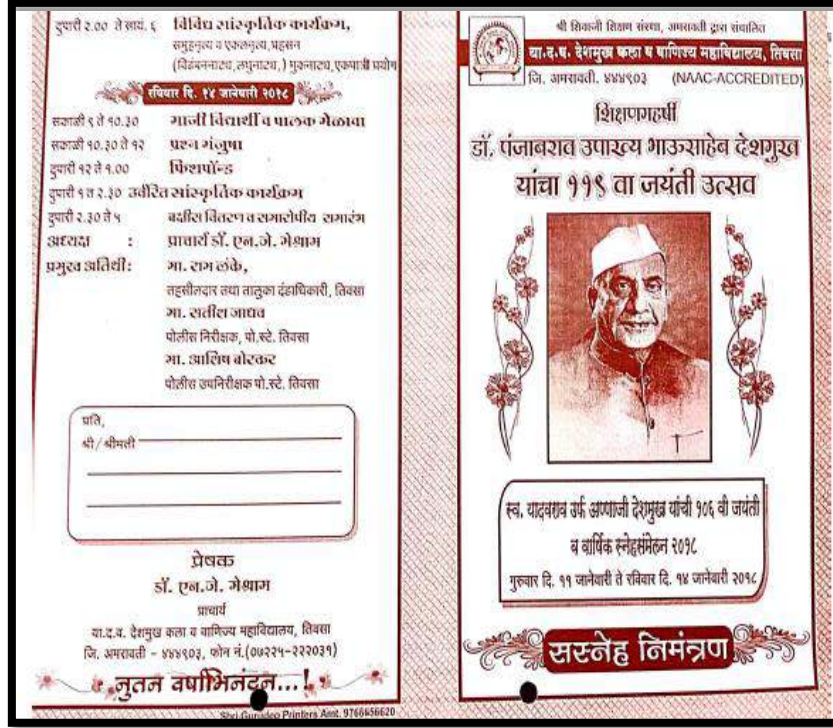 दुपारी 2.00 ते सायं. ६ विविध सांस्कृतिक कार्यक्रम,
समुहनृत्य व एकलनृत्य,प्रहसन
(विडंबननाट्य,लघुनाट्य,) मुकनाट्य,एकपात्री प्रयोग
रविवार दि. १४ जानेवारी २०१८
सकाळी ९ ते १०.३० माजी विद्यार्थी व पालक मेळावा
सकाळी १०.३० ते १२ प्रश्न मंजुषा
दुपारी १२ ते १.०० फिशपॉन्ड
दुपारी १ ते २.३० उर्वरित सांस्कृतिक कार्यक्रम
दुपारी २.३० ते ५ बक्षीस वितरण व समारोपीय समारंभ
अध्यक्ष : प्राचार्य डॉ. एन.जे. मेश्राम
प्रमुख अतिथी: मा. राम लंके,
तहसीलदार तथा तालुका दंडाधिकारी, तिवसा
मा. सतीश जाधव
पोलीस निरीक्षक, पो.स्टे. तिवसा
मा. आशिष बोरकर
पोलीस उपनिरीक्षक पो.स्टे. तिवसा
प्रति,
श्री/श्रीमती
प्रेषक
डॉ. एन.जे. मेश्राम
प्राचार्य
या.द.व. देशमुख कला व वाणिज्य महाविद्यालय, तिवसा
जि. अमरावती - ४४४९०३, फोन नं.(०७२२५-२२२०३१)
नुतन वर्षाभिनंदन...!
Shri Gurudeo Printers Amt. 9766656620
श्री शिवाजी शिक्षण संस्था, अमरावती द्वारा संचालित
या.द.व. देशमुख कला व वाणिज्य महाविद्यालय, तिवसा
जि. अमरावती. ४४४९०३ (NAAC-ACCREDITED)
शिक्षणमहर्षी
डॉ. पंजाबराव उपाख्य भाऊसाहेब देशमुख
यांचा ११९ वा जयंती उत्सव
स्व. यादवराव उर्फ अण्णाजी देशमुख यांची १०६ वी जयंती
व वार्षिक स्नेहसंमेलन २०१८
गुरुवार दि. ११ जानेवारी ते रविवार दि. १४ जानेवारी २०१८
सस्नेह निमंत्रण